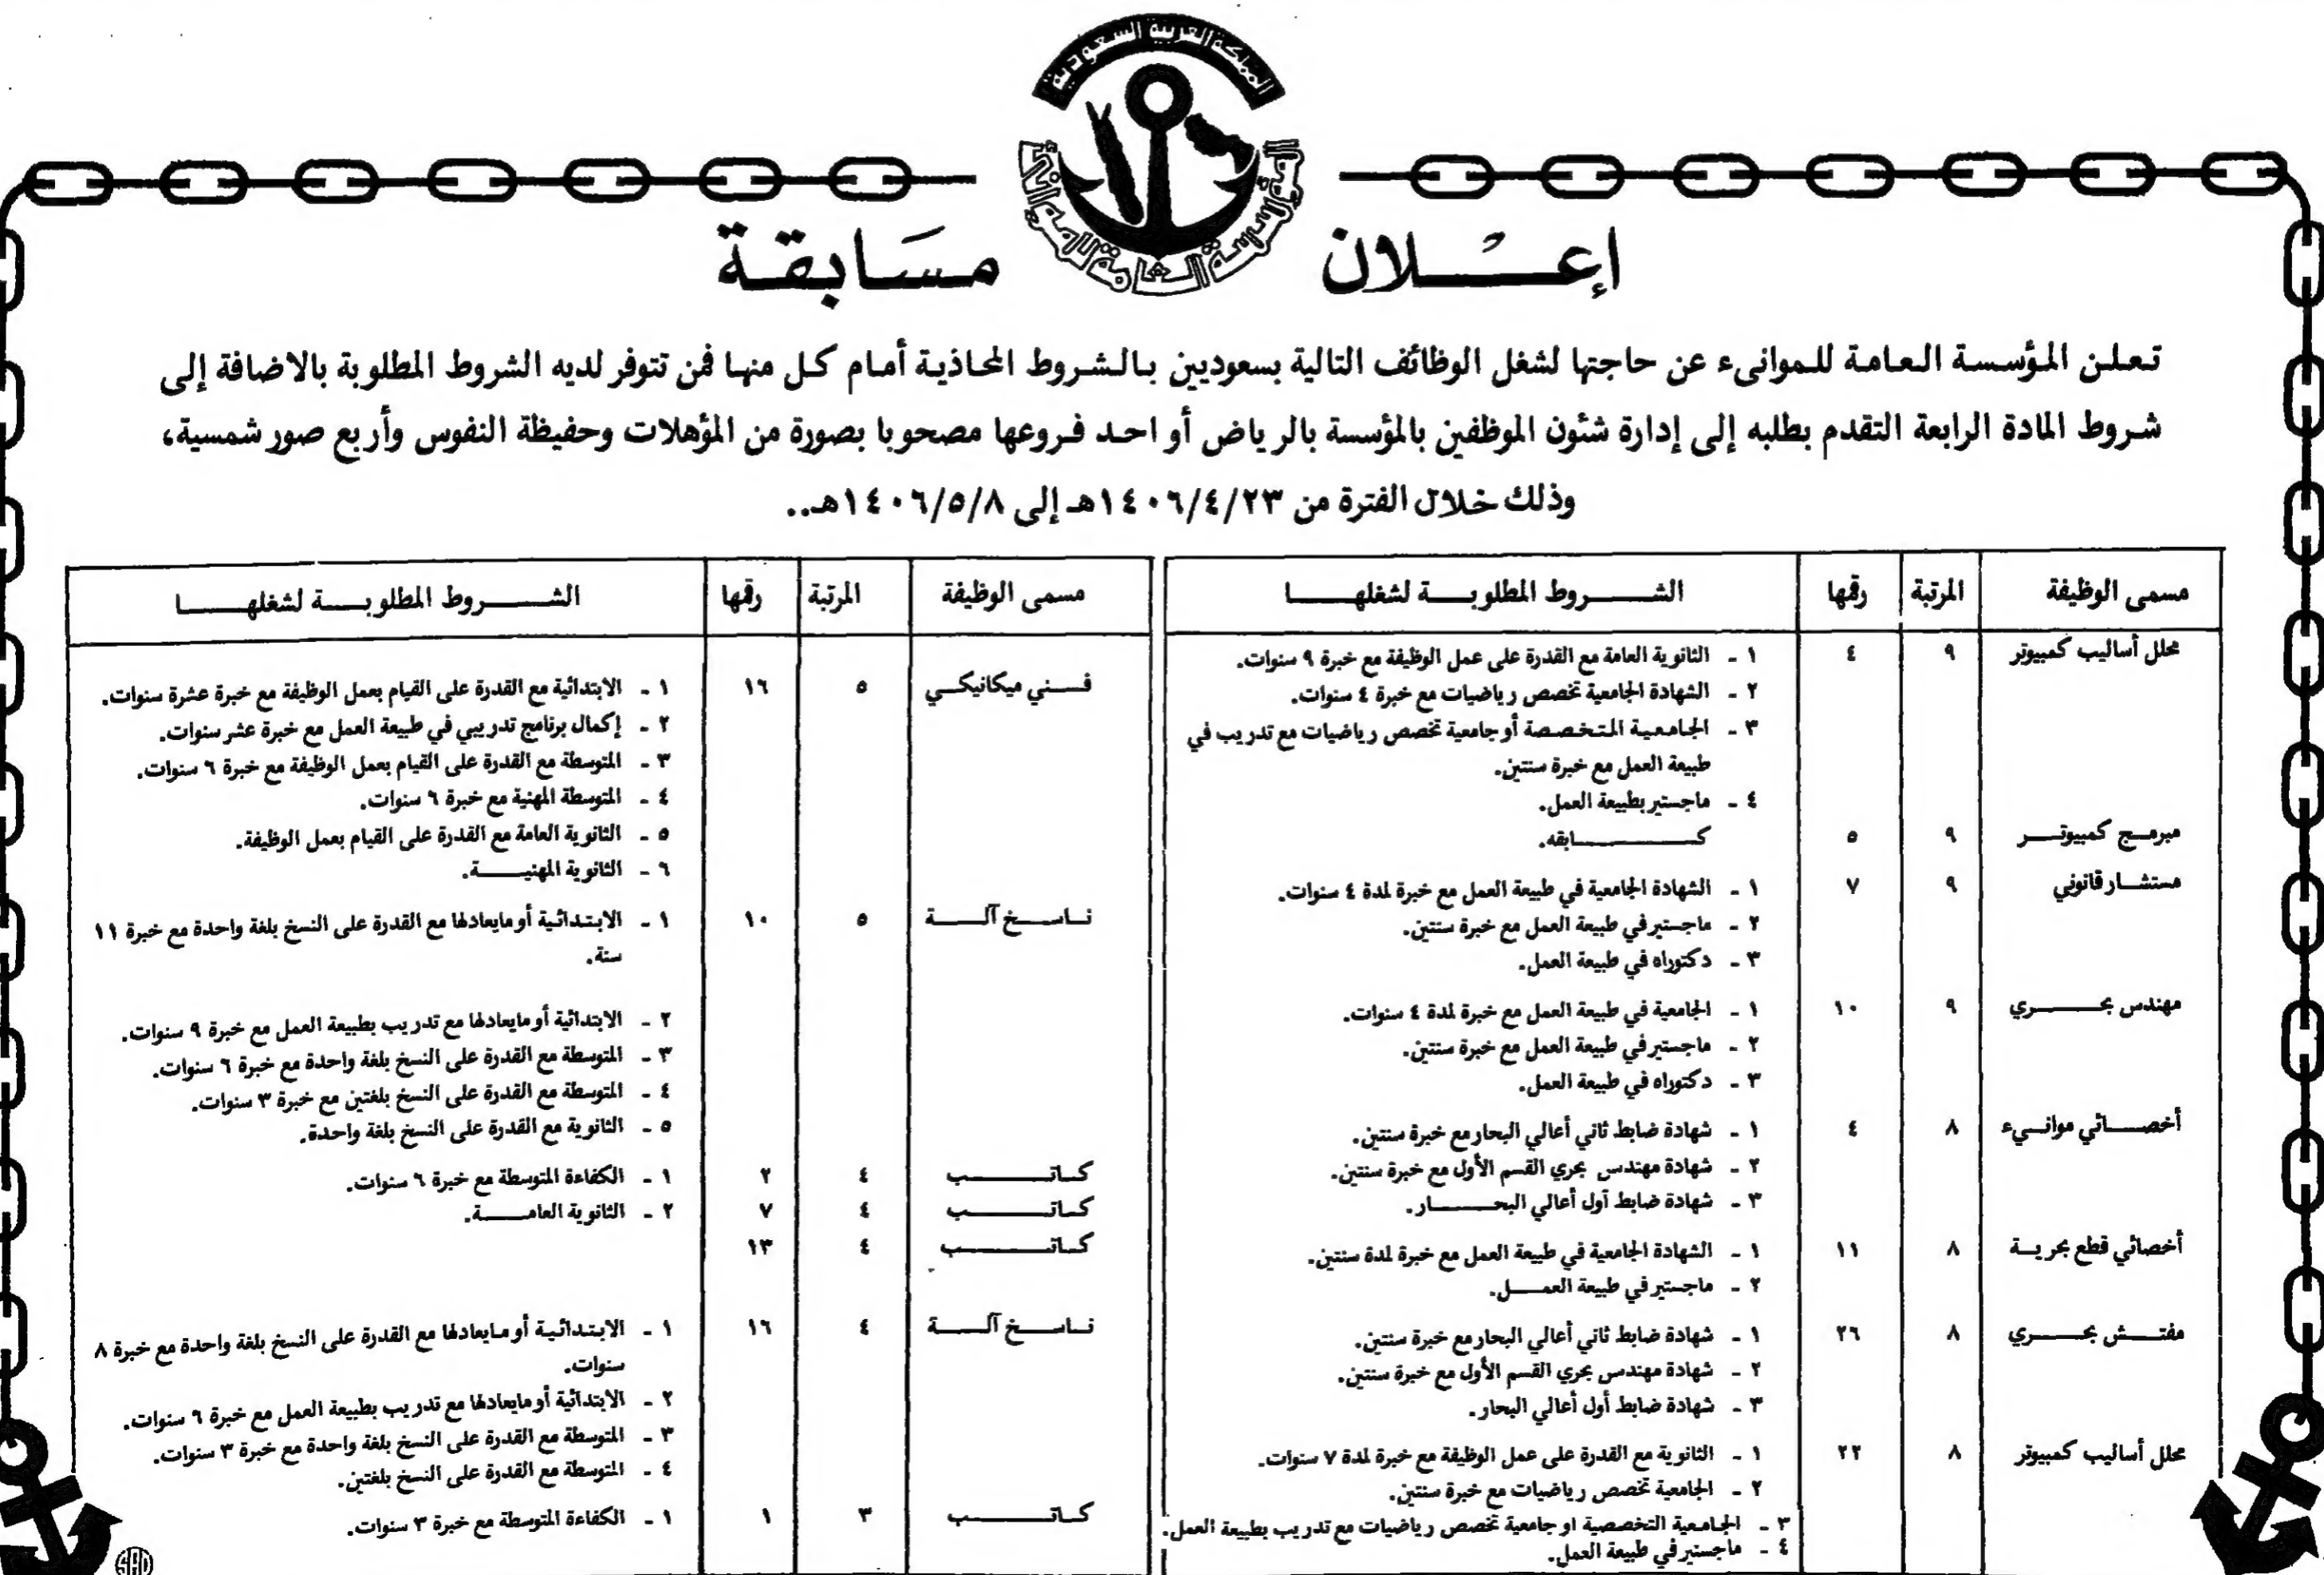 المملكة العربية السعودية
المؤسسة العامة للموانئ
إعْـلان مسَابقـة
تـعـلـن المـؤسـسـة الـعـامـة للـموانىء عن حاجتها لشغل الوظائف التالية بسعوديين بـالـشـروط المحاذيـة أمـام كـل منهـا فمن تتوفر لديه الشروط المطلوبة بالاضافة إلى
شـروط المادة الرابعة التقدم بطلبه إلى إدارة شئون الموظفين بالمؤسسة بالرياض أو احـد فـروعها مصحوبا بصورة من المؤهلات وحفيظة النفوس وأربع صور شمسية،
وذلك خلال الفترة من ١٤٠٦/٤/٢٣هـ إلى ١٤٠٦/٥/٨هـ..
مسمى الوظيفة المرتبة رقمها الشـــروط المطلوبـــة لشغلهـــا
محلل أساليب كمبيوتر ٩ ٤ ١ - الثانوية العامة مع القدرة على عمل الوظيفة مع خبرة ٩ سنوات.
٢ - الشهادة الجامعية تخصص رياضيات مع خبرة ٤ سنوات.
٣ - الجـامـعـيـة المـتـخـصـصـة أو جامعية تخصص رياضيات مع تدريب في
طبيعة العمل مع خبرة سنتين.
٤ - ماجستير بطبيعة العمل.
مبرمـج كمبيوتـــر ٩ ٥ كـــــــابقه.
مستشـار قانوني ٩ ٧ ١ - الشهادة الجامعية في طبيعة العمل مع خبرة لمدة ٤ سنوات.
٢ - ماجستير في طبيعة العمل مع خبرة سنتين.
٣ - دكتوراه في طبيعة العمل.
مهندس بحـــــري ٩ ١٠ ١ - الجامعية في طبيعة العمل مع خبرة لمدة ٤ سنوات.
٢ - ماجستير في طبيعة العمل مع خبرة سنتين.
٣ - دكتوراه في طبيعة العمل.
أخصـــائي موانـيء ٨ ٤ ١ - شهادة ضابط ثاني أعالي البحار مع خبرة سنتين.
٢ - شهادة مهندس بحري القسم الأول مع خبرة سنتين.
٣ - شهادة ضابط أول أعالي البحـــــار.
أخصائي قطع بحريـة ٨ ١١ ١ - الشهادة الجامعية في طبيعة العمل مع خبرة لمدة سنتين.
٢ - ماجستير في طبيعة العمـــل.
مفتـــش بحــــري ٨ ٢٦ ١ - شهادة ضابط ثاني أعالي البحار مع خبرة سنتين.
٢ - شهادة مهندس بحري القسم الأول مع خبرة سنتين.
٣ - شهادة ضابط أول أعالي البحار.
محلل أساليب كمبيوتر ٨ ٢٢ ١ - الثانوية مع القدرة على عمل الوظيفة مع خبرة لمدة ٧ سنوات.
٢ - الجامعية تخصص رياضيات مع خبرة سنتين.
٣ - الجـامـعية التخصصية او جامعية تخصص رياضيات مع تدريب بطبيعة العمل.
٤ - ماجستير في طبيعة العمل.
مسمى الوظيفة المرتبة رقمها الشـــروط المطلوبـــة لشغلهـــا
فـــني ميكانيكـــي ٥ ١٦ ١ - الابتدائية مع القدرة على القيام بعمل الوظيفة مع خبرة عشرة سنوات.
٢ - إكمال برنامج تدريبي في طبيعة العمل مع خبرة عشر سنوات.
٣ - المتوسطة مع القدرة على القيام بعمل الوظيفة مع خبرة ٦ سنوات.
٤ - المتوسطة المهنية مع خبرة ٦ سنوات.
٥ - الثانوية العامة مع القدرة على القيام بعمل الوظيفة.
٦ - الثانوية المهنيـــــة.
نـاســـخ آلـــــة ٥ ١٠ ١ - الابـتـدائـية أو مايعادلها مع القدرة على النسخ بلغة واحدة مع خبرة ١١
سنة.
٢ - الابتدائية أو مايعادلها مع تدريب بطبيعة العمل مع خبرة ٩ سنوات.
٣ - المتوسطة مع القدرة على النسخ بلغة واحدة مع خبرة ٦ سنوات.
٤ - المتوسطة مع القدرة على النسخ بلغتين مع خبرة ٣ سنوات.
٥ - الثانوية مع القدرة على النسخ بلغة واحدة.
كـاتـــــــب ٤ ٢ ١ - الكفاءة المتوسطة مع خبرة ٦ سنوات.
كـاتـــــــب ٤ ٧ ٢ - الثانوية العامـــــة.
كـاتـــــــب ٤ ١٣
نـاســـخ آلـــــة ٤ ١٦ ١ - الابـتـدائـيـة أو مـايعادلها مع القدرة على النسخ بلغة واحدة مع خبرة ٨
سنوات.
٢ - الابتدائية أو مايعادلها مع تدريب بطبيعة العمل مع خبرة ٦ سنوات.
٣ - المتوسطة مع القدرة على النسخ بلغة واحدة مع خبرة ٣ سنوات.
٤ - المتوسطة مع القدرة على النسخ بلغتين.
كـاتـــــــب ٣ ١ ١ - الكفاءة المتوسطة مع خبرة ٣ سنوات.